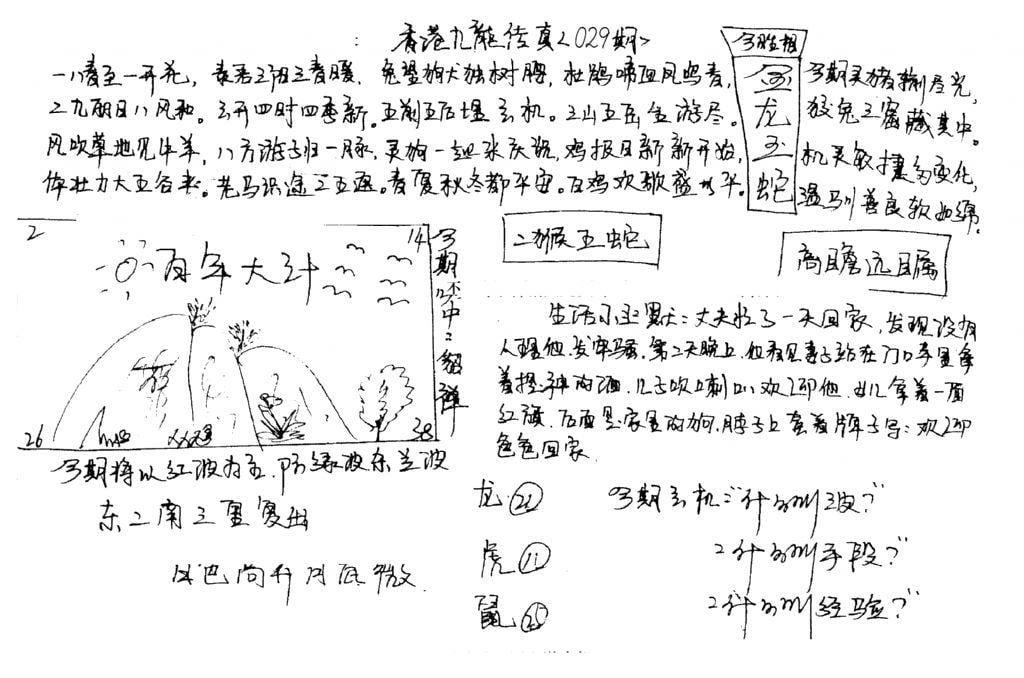 香港九龍传真<029期>
一八春至一开花，春君三阳三春暖。兔盟狗犬独树腰，杜鹃啼血凤鸣春，
二九朝日八风和。三开四时四季新。五前五后望玄机。三山五岳全游尽。
风吹草地见牛羊，八方游子归一脉，灵狗一起来庆祝，鸡报日新新开始，
体壮力大五谷来。老马识途三五返。春夏秋冬都平安。百鸡欢歌盛太平。
今期生相
金龙玉蛇
今期灵猪输尽光，
狡兔三窟藏其中。
机灵敏捷多变化，
温驯善良软如绵。
2
14
百年大计
26
38
今期吥中：貂蝉
二猴五蛇
高瞻远瞩
生活小幽默：丈夫忙了一天回家，发现没有
人理他，发牢骚。第二天晚上，他看见妻子站在门口手里拿
着提神的酒，儿子吹喇叭欢迎他，女儿拿着一面
红旗，后面是家里的狗，脖子上套着牌子写：欢迎
爸爸回家.
今期将以红波为主，防绿波东兰波
东二南三里复出
龙 22
虎 11
鼠 25
今期玄机：“什么叫三波？”
2什么叫手段？”
2什么叫经验？”